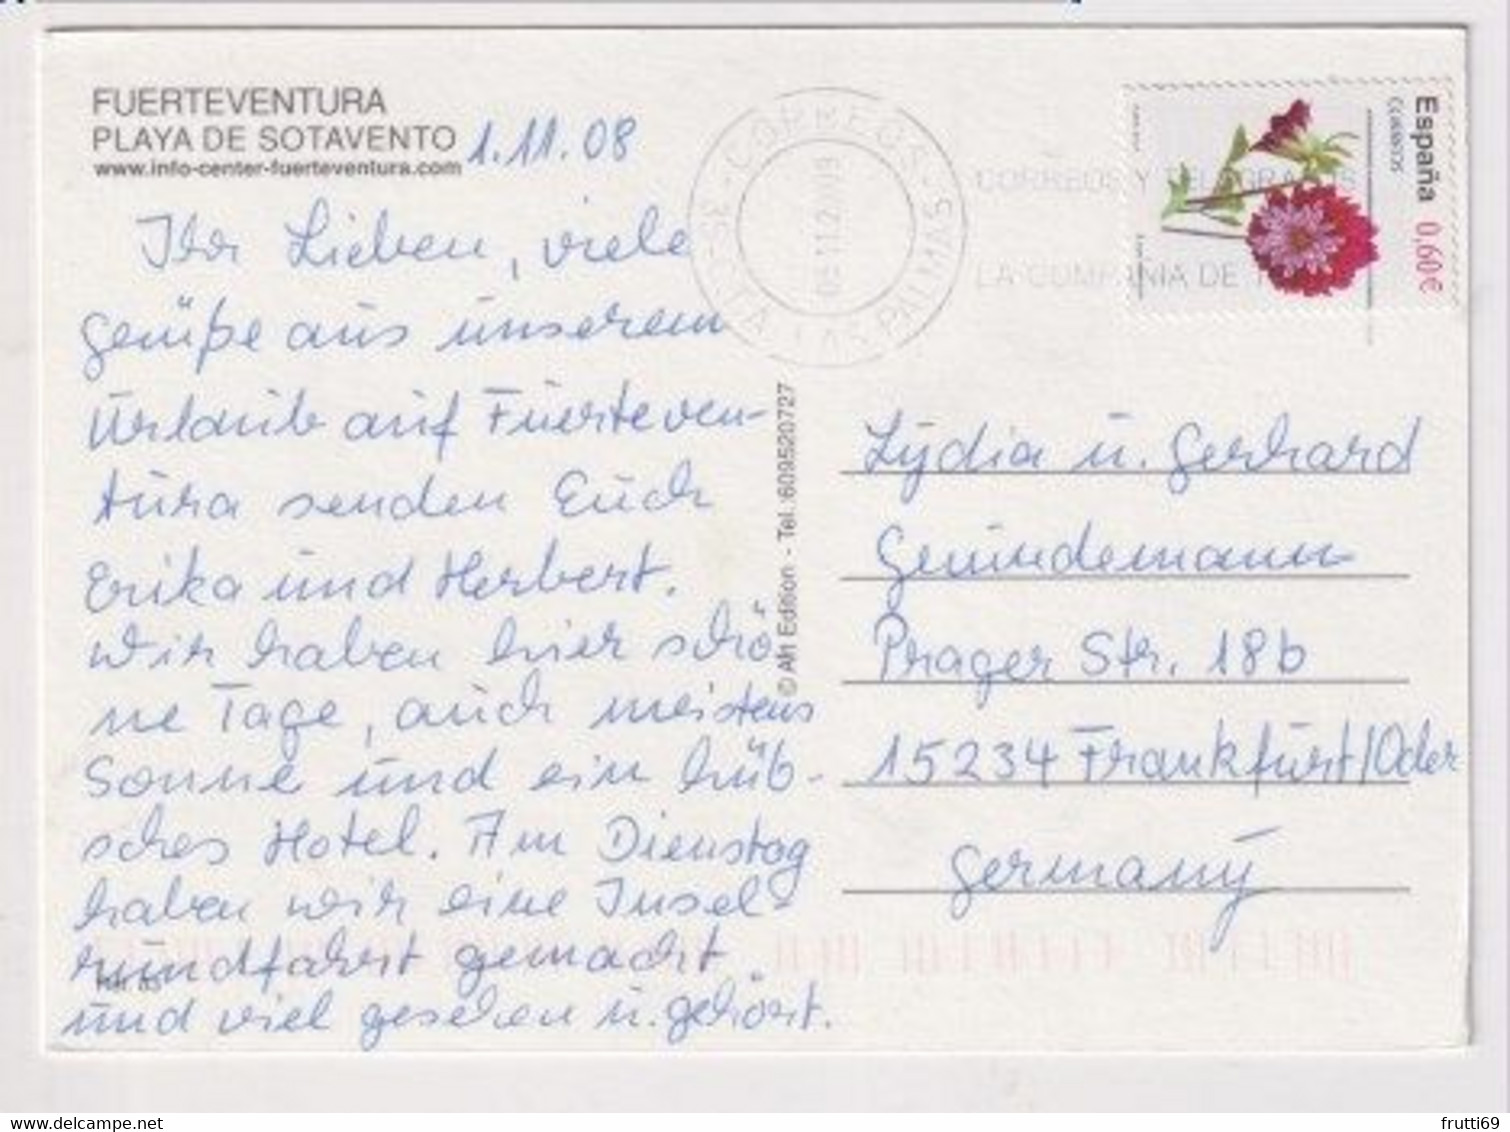 FUERTEVENTURA
PLAYA DE SOTAVENTO
www.info-center-fuerteventura.com
1.11.08
Ihr Lieben, viele
Grüße aus unserem
Urlaub auf Fuerteven-
tura senden Euch
Erika und Herbert.
Wir haben hier schö
ne Tage, auch meistens
Sonne und ein hüb-
sches Hotel. Am Dienstag
haben wir eine Insel-
rundfahrt gemacht
und viel gesehen u. gehört.
© AH Edition - Tel.:609520727
CORREOS
LAS PALMAS
CORREOS Y TELEGRAFOS
LA COMPAÑIA DE
España
CORREOS
0,60€
Lydia u. Gerhard
Gründemann
Prager Str. 18b
15234 Frankfurt/Oder
Germany
frutti69